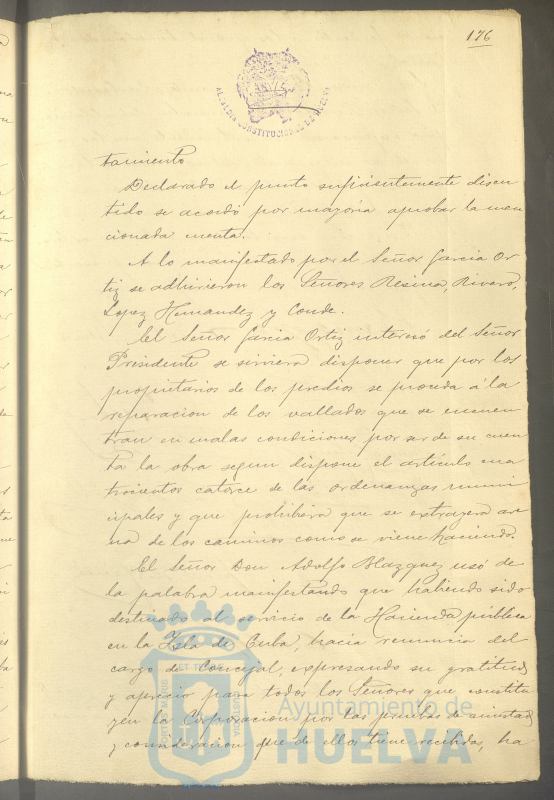 176
ALCALDIA CONSTITUCIONAL DE HUELVA
tamiento
Declarado el punto suficientemente discu
tido se acordó por mayoria aprobar la men
cionada cuenta.
A lo manifestado por el Señor Garcia Or
tiz se adhirieron los Señores Resina, Rivero,
Lopez Hernandez y Conde.
El Señor Garcia Ortiz interesó del Señor
Presidente se sirviera disponer que por los
propietarios de los predios se proceda á la
reparacion de los vallados que se encuen
tran en malas condiciones por ser de su cuen
ta la obra segun dispone el artículo cua
trocientos catorce de las ordenanzas muni
cipales y que prohibiera que se extrayera are
na de los caminos como se viene haciendo.
El Señor Don Adolfo Blazquez usó de
la palabra manifestando que habiendo sido
destinado al servicio de la Hacienda pública
en la Isla de Cuba, hacia renuncia del
cargo de Concejal, expresando su gratitud
y aprecio para todos los Señores que constitu
yen la Corporacion por las pruebas de amistad
y consideracion que de ellos tiene recibidas, ha
Ayuntamiento de
HUELVA